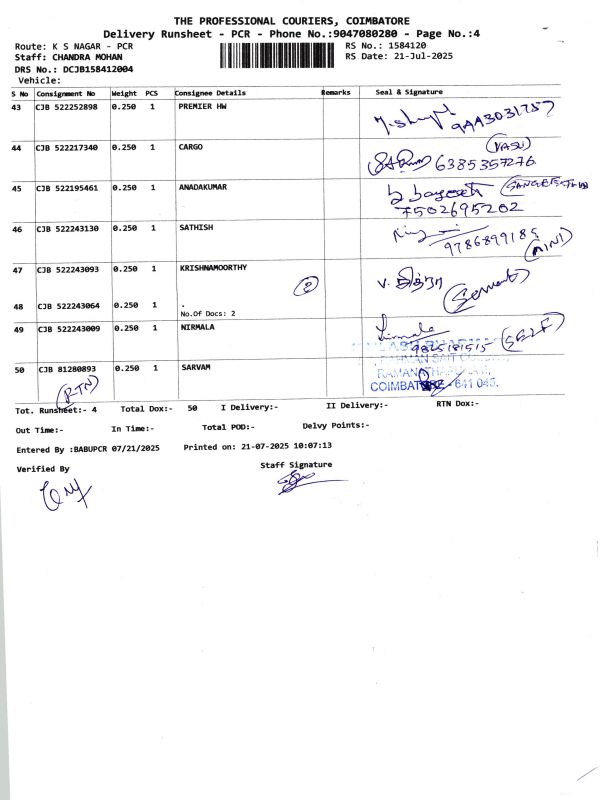 THE PROFESSIONAL COURIERS, COIMBATORE
Delivery Runsheet - PCR - Phone No.:9047080280 - Page No.:4
Route: K S NAGAR - PCR RS No.: 1584120
Staff: CHANDRA MOHAN RS Date: 21-Jul-2025
DRS No.: DCJB158412004
Vehicle:
S No Consignment No Weight PCS Consignee Details Remarks Seal & Signature
43 CJB 522252898 0.250 1 PREMIER HW
44 CJB 522217340 0.250 1 CARGO (VASU)
6385357276
45 CJB 522195461 0.250 1 ANADAKUMAR
7502695202
46 CJB 522243130 0.250 1 SATHISH
9786899185 (MINI)
47 CJB 522243093 0.250 1 KRISHNAMOORTHY
V. சித்ரா (Servant)
2
48 CJB 522243064 0.250 1 .
No.Of Docs: 2
49 CJB 522243009 0.250 1 NIRMALA Nirmala
(SELF)
50 CJB 81280893 0.250 1 SARVAM
COIMBATORE - 641 045.
(RTN)
Tot. Runsheet:- 4 Total Dox:- 50 I Delivery:- II Delivery:- RTN Dox:-
Out Time:- In Time:- Total POD:- Delvy Points:-
Entered By :BABUPCR 07/21/2025 Printed on: 21-07-2025 10:07:13
Verified By Staff Signature